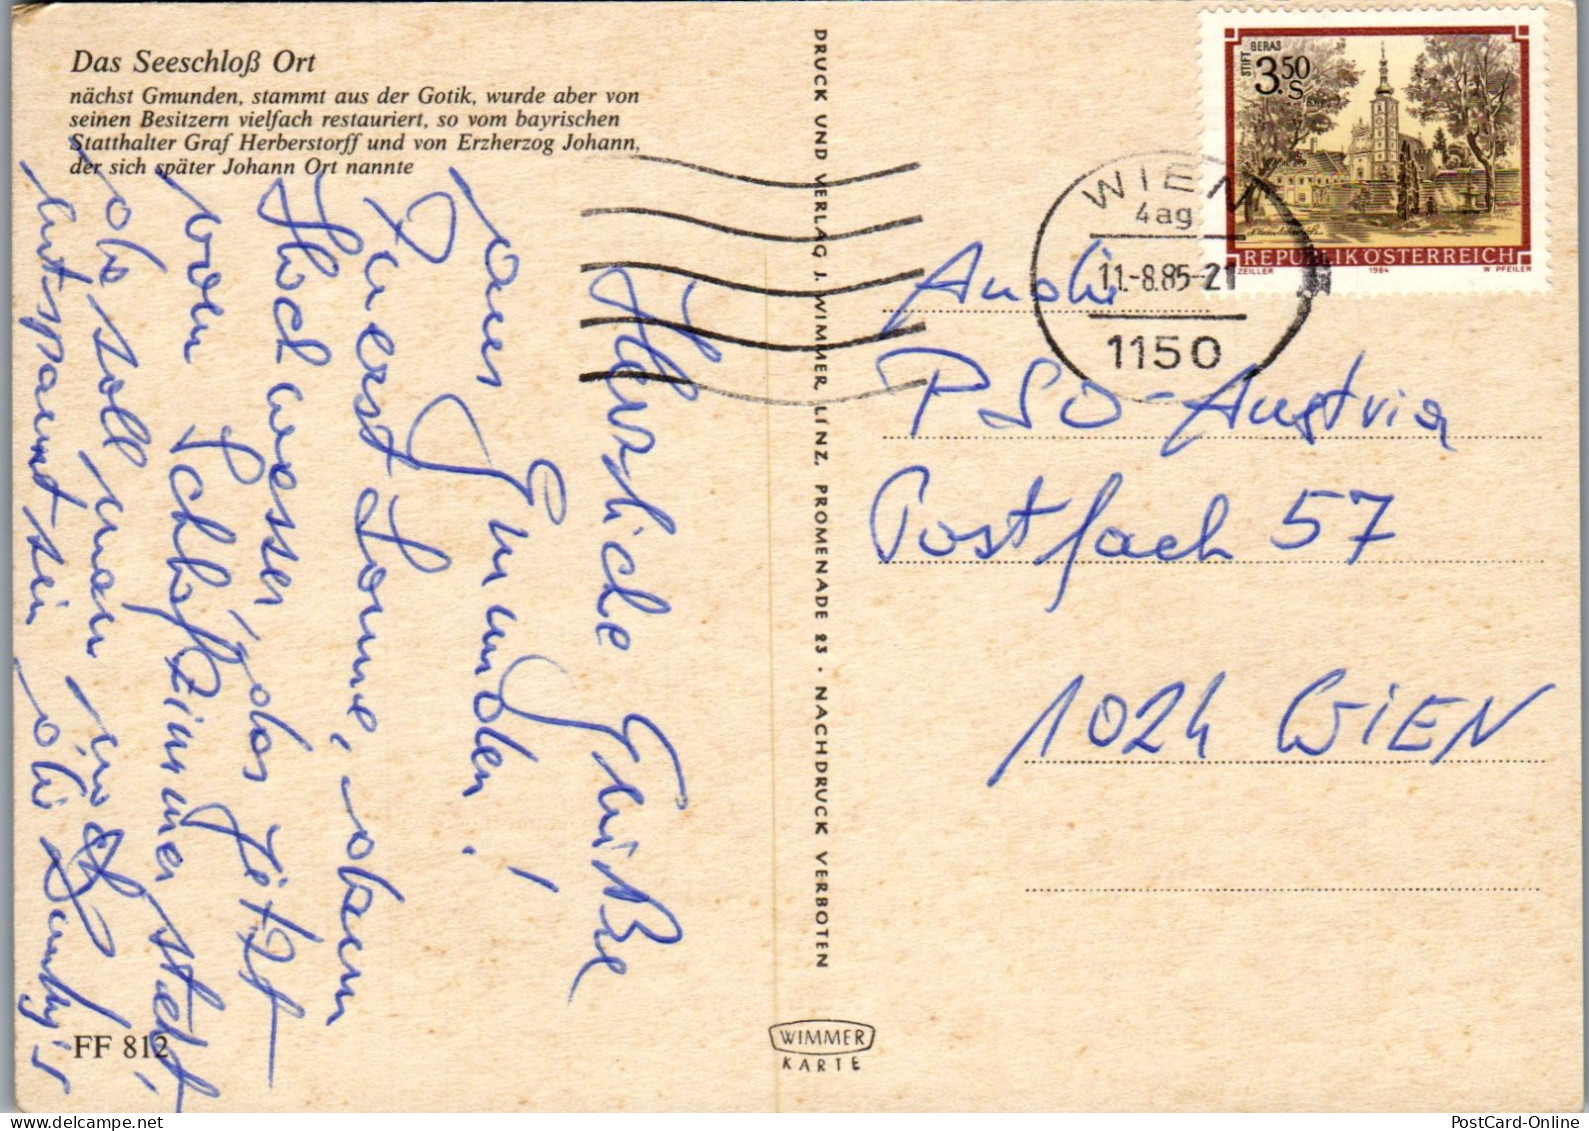 Das Seeschloß Ort
nächst Gmunden, stammt aus der Gotik, wurde aber von
seinen Besitzern vielfach restauriert, so vom bayrischen
Statthalter Graf Herberstorff und von Erzherzog Johann,
der sich später Johann Ort nannte
Herzliche Grüße
aus Gmunden!
Zuerst Sonne, dann
Hochwasser, das jetzt
vom Schlafzimmer steht,
da soll man noch
entspannt sein die
FF 812
DRUCK UND VERLAG J. WIMMER, LINZ, PROMENADE 23 · NACHDRUCK VERBOTEN
WIMMER
KARTE
STIFT GERAS
3.50
S
REPUBLIK ÖSTERREICH
ZEILLER 1984 W PFEILER
WIEN
4ag
11.-8.85-21
1150
An die
PSD-Austria
Postfach 57
1024 WIEN
PostCard-Online